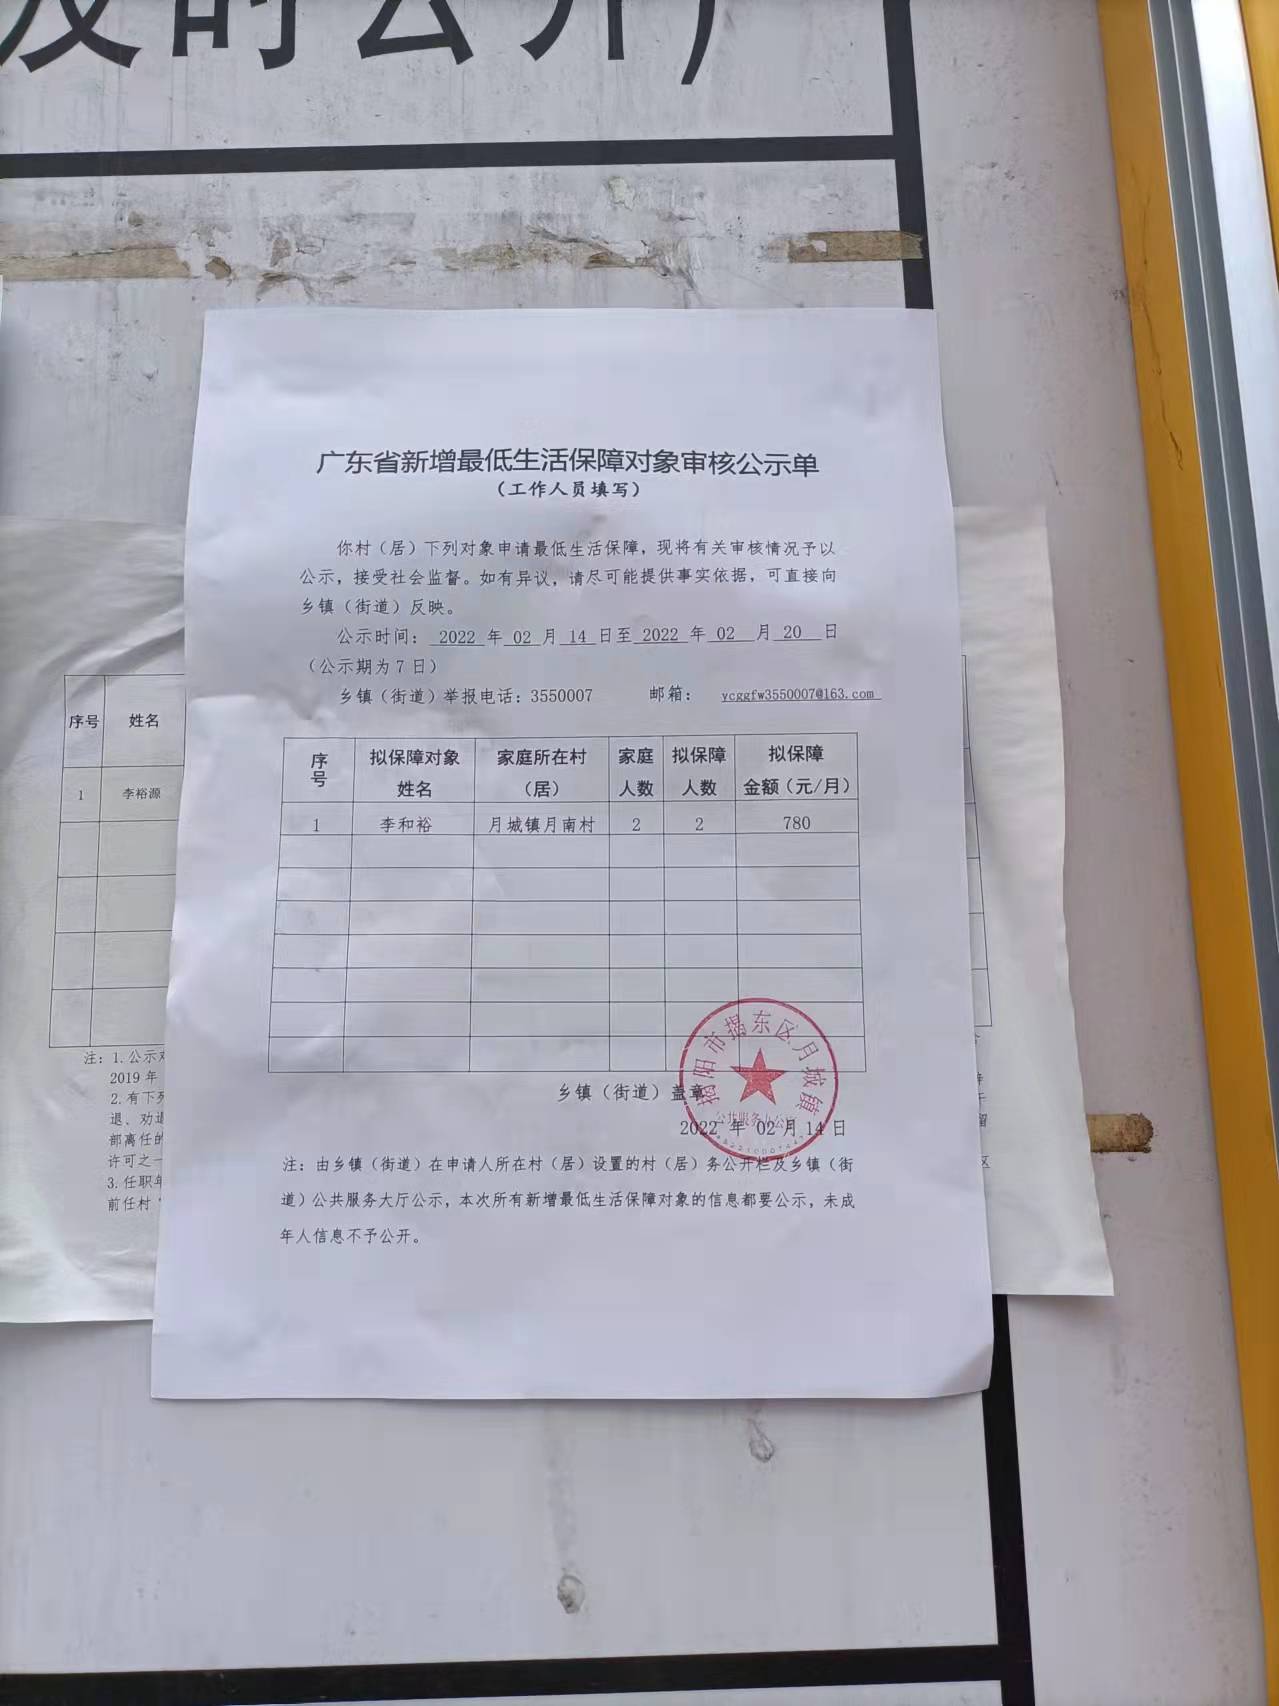 及时公开)
广东省新增最低生活保障对象审核公示单
（工作人员填写）
你村（居）下列对象申请最低生活保障，现将有关审核情况予以
公示，接受社会监督。如有异议，请尽可能提供事实依据，可直接向
乡镇（街道）反映。
公示时间：2022 年 02 月 14 日至 2022 年 02 月 20 日
（公示期为7日）
乡镇（街道）举报电话：3550007 邮箱： ycggfw3550007@163.com
序号 拟保障对象姓名 家庭所在村（居） 家庭人数 拟保障人数 拟保障金额（元/月）
1 李和裕 月城镇月南村 2 2 780
乡镇（街道）盖章
揭阳市揭东区月城镇
公共服务办公室
2022 年 02 月 14 日
注：由乡镇（街道）在申请人所在村（居）设置的村（居）务公开栏及乡镇（街
道）公共服务大厅公示，本次所有新增最低生活保障对象的信息都要公示，未成
年人信息不予公开。
序号 姓名
1 李裕源
注：1.公示
2019年
2.有下列
退、劝退
部离任的
许可之一
3.任职年
前任村